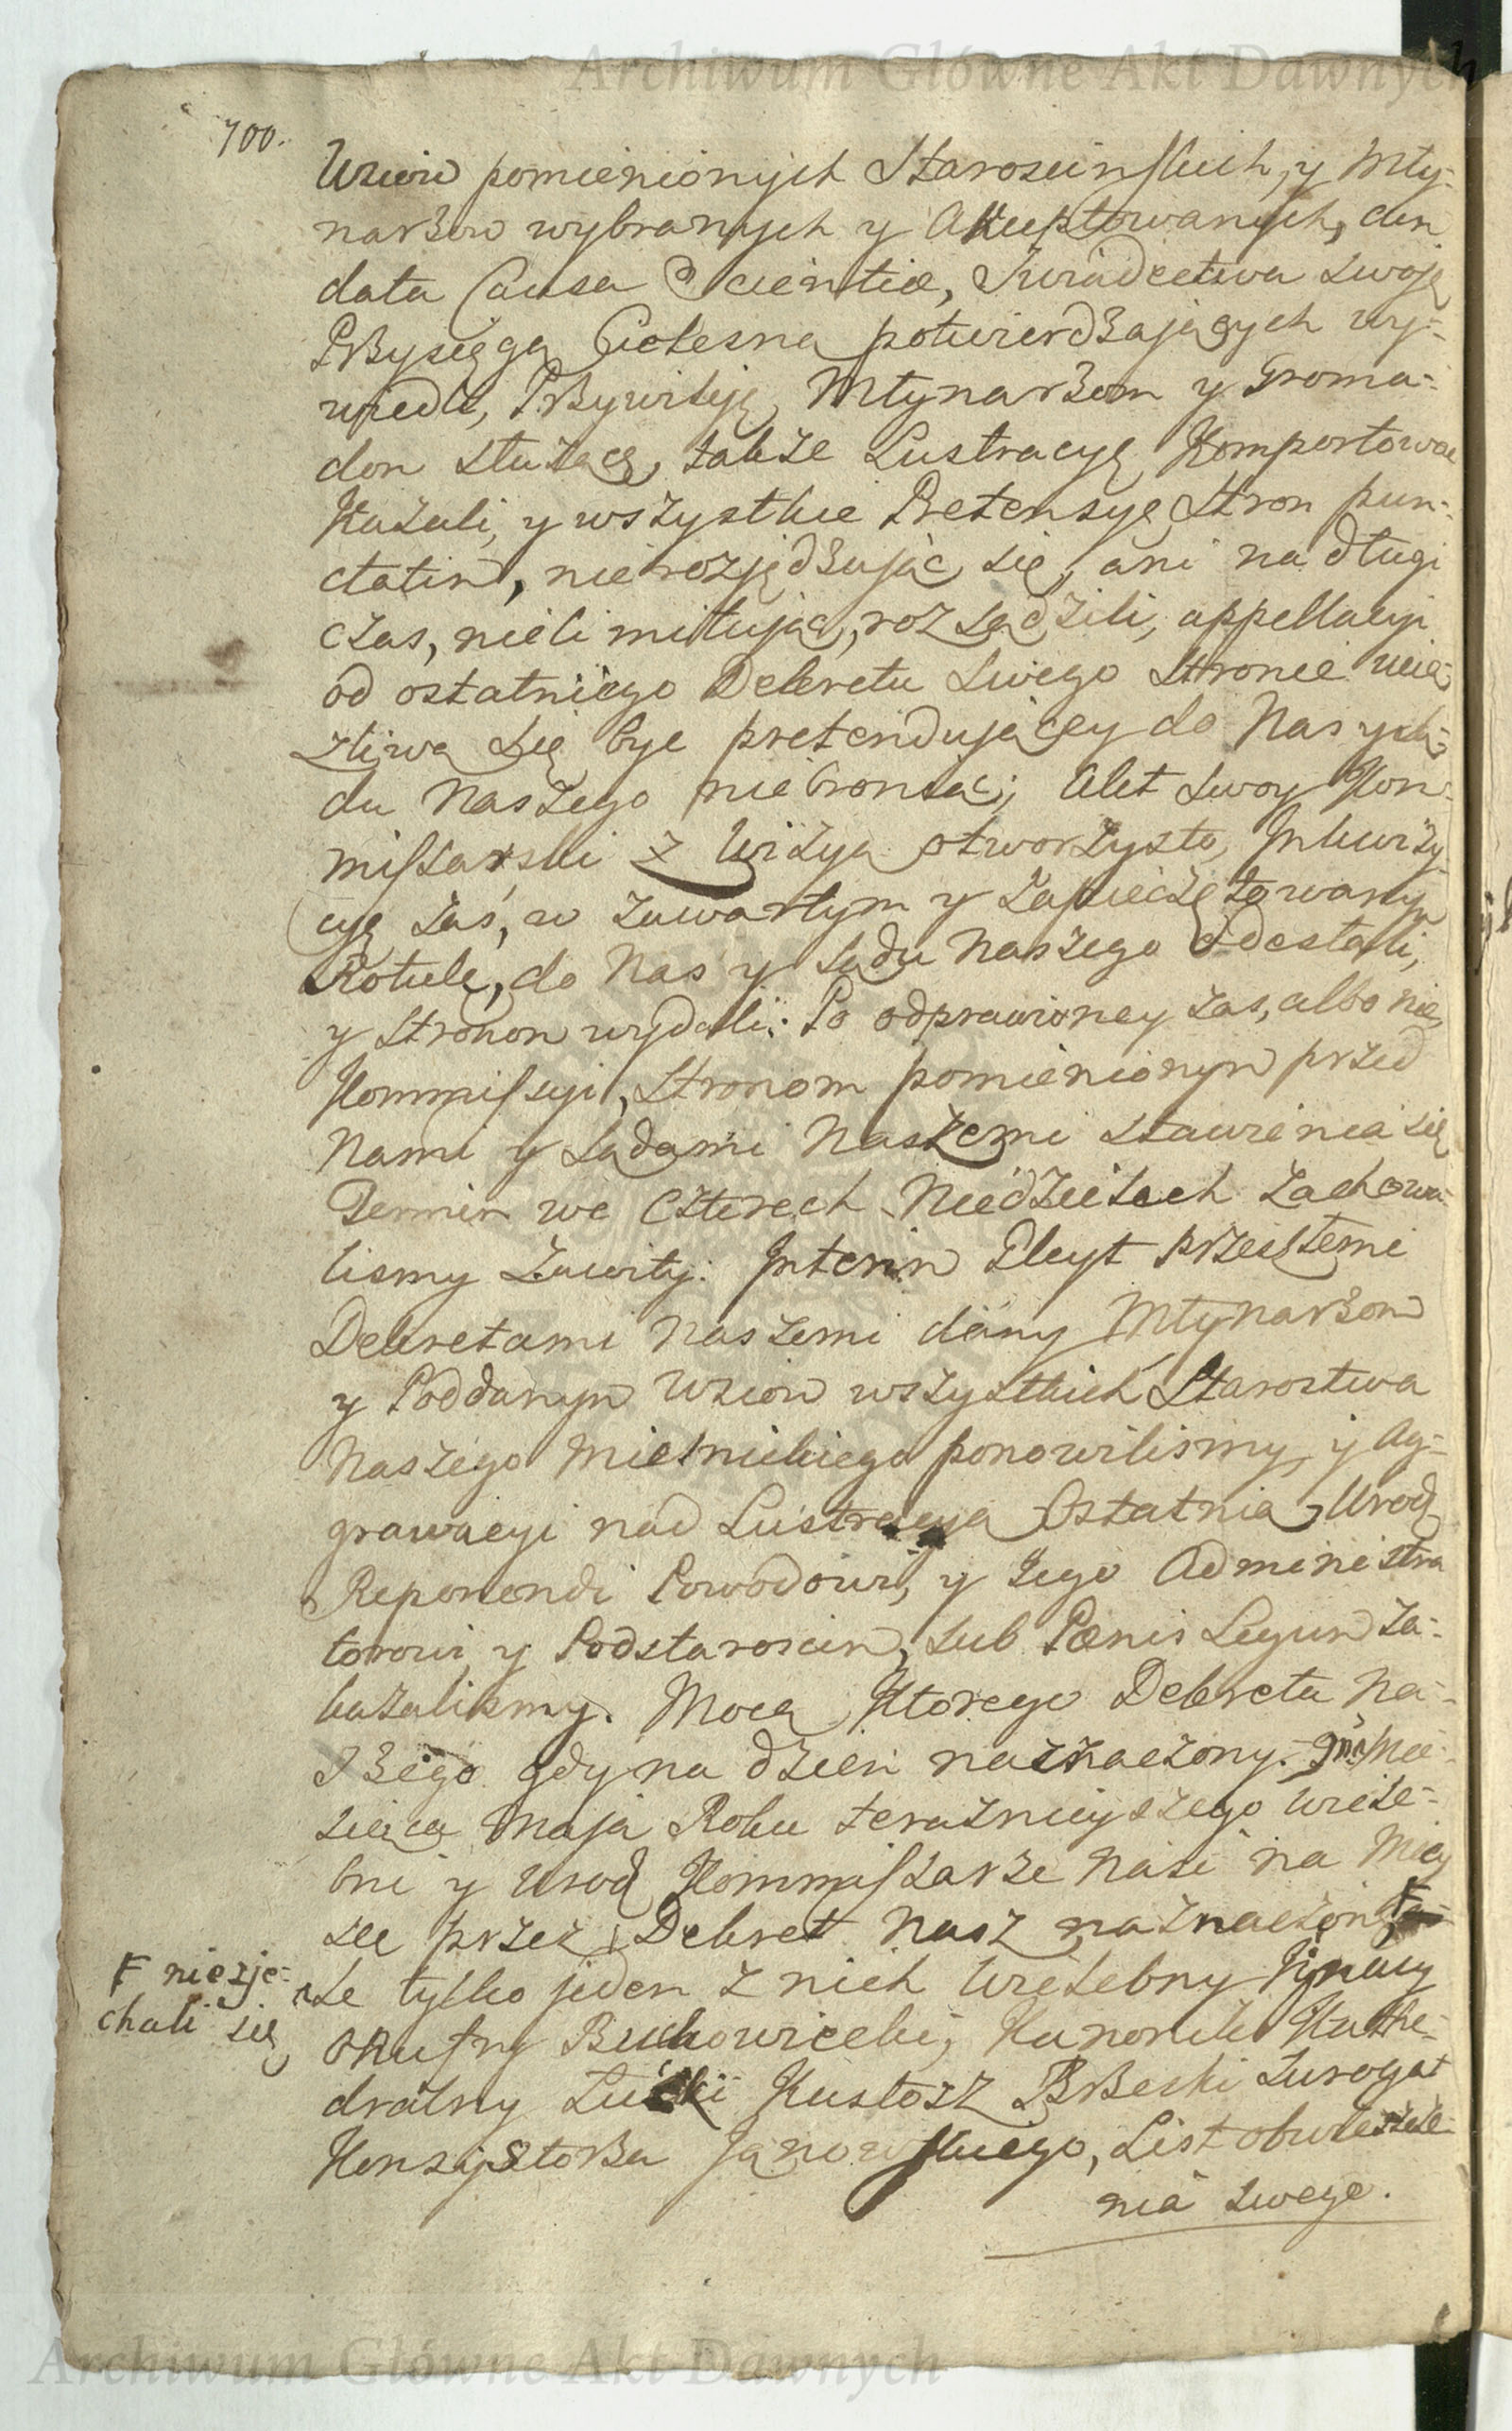 Archiwum Główne Akt Dawnych
700.
Wsiow pomienionych Staroscinskich, y Mły-
narzow wybranych y Akceptowanych, cum
data Causa Scientiæ, Swiadectwa swoje
Przysięgą Cielesną potwierdzających wy-
wiedli, Przywileje, Młynarzom y Groma-
dom służące, także Lustracyę Komportować
Kazali, y wszystkie Pretensye Stron pun-
ctatim, nie rozjeżdżając się, ani na długi
czas, nie limitując, rozsądzili, appellacyi
od ostatniego Dekretu swego Stronie ucią-
żliwą się być pretendującey do Nas y Są-
du Naszego nie broniąc; Akt swoy Kom-
missarski z Wizyą otworzysto, Inkwizy-
cyę zaś, w zawartym y zapieczętowanym
Rotule, do Nas y Sądu Naszego odesłali,
y Stronom wydali: Po odprawioney zas, albo nie,
Kommissyi, Stronom pomienionym przed
Nami y Sądami Naszemi stawienia się
Termin we czterech Niedzielach zachowa-
lismy zawity: Interim Gleyt przeszłemi
Dekretami Naszemi dany Młynarzom
y Poddanym Wsiow wszystkich Starostwa
Naszego Mielnickiego ponowilismy, y Ag-
grawacyi nad Lustracyą Ostatnią, Urod
Reponendi Powodowi, y jego Administra
torowi y Podstaroscim, sub Pœnis Legum za-
kazalismy. Mocą Ktorego Dekretu Na-
szego gdy na dzien naznaczony Mie-
siąca Maja Roku teraznieyszego Wiele-
bni y Urod Kommissarze Nasi na Miey
sce przez Dekret Nasz naznaczone F
F nie zje-
chali się
ale tylko jeden z nich Wielebny Ignacy
Onufry Bukowiecki, Kanonik Kathe-
dralny Łucki Kustosz Brzeski Surogat
Konsystorza Janowskiego, List obwieszcze-
nia swego.
Archiwum Główne Akt Dawnych